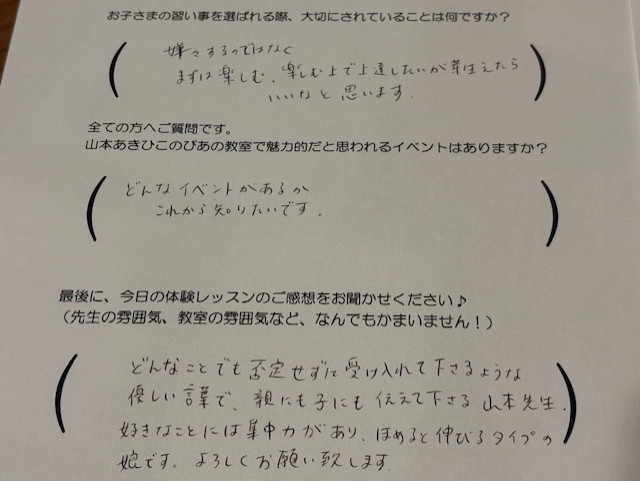 お子さまの習い事を選ばれる際、大切にされていることは何ですか？
嫌々するのではなく
まずは楽しむ、楽しむ上で上達したいが芽生えたら
いいなと思います。
全ての方へご質問です。
山本あきひこのぴあの教室で魅力的だと思われるイベントはありますか？
どんなイベントがあるか
これから知りたいです。
最後に、今日の体験レッスンのご感想をお聞かせください♪
（先生の雰囲気、教室の雰囲気など、なんでもかまいません！）
どんなことでも否定せずに受け入れて下さるような
優しい言葉で、親にも子にも伝えて下さる山本先生。
好きなことには集中力があり、ほめると伸びるタイプの
娘です。よろしくお願い致します。